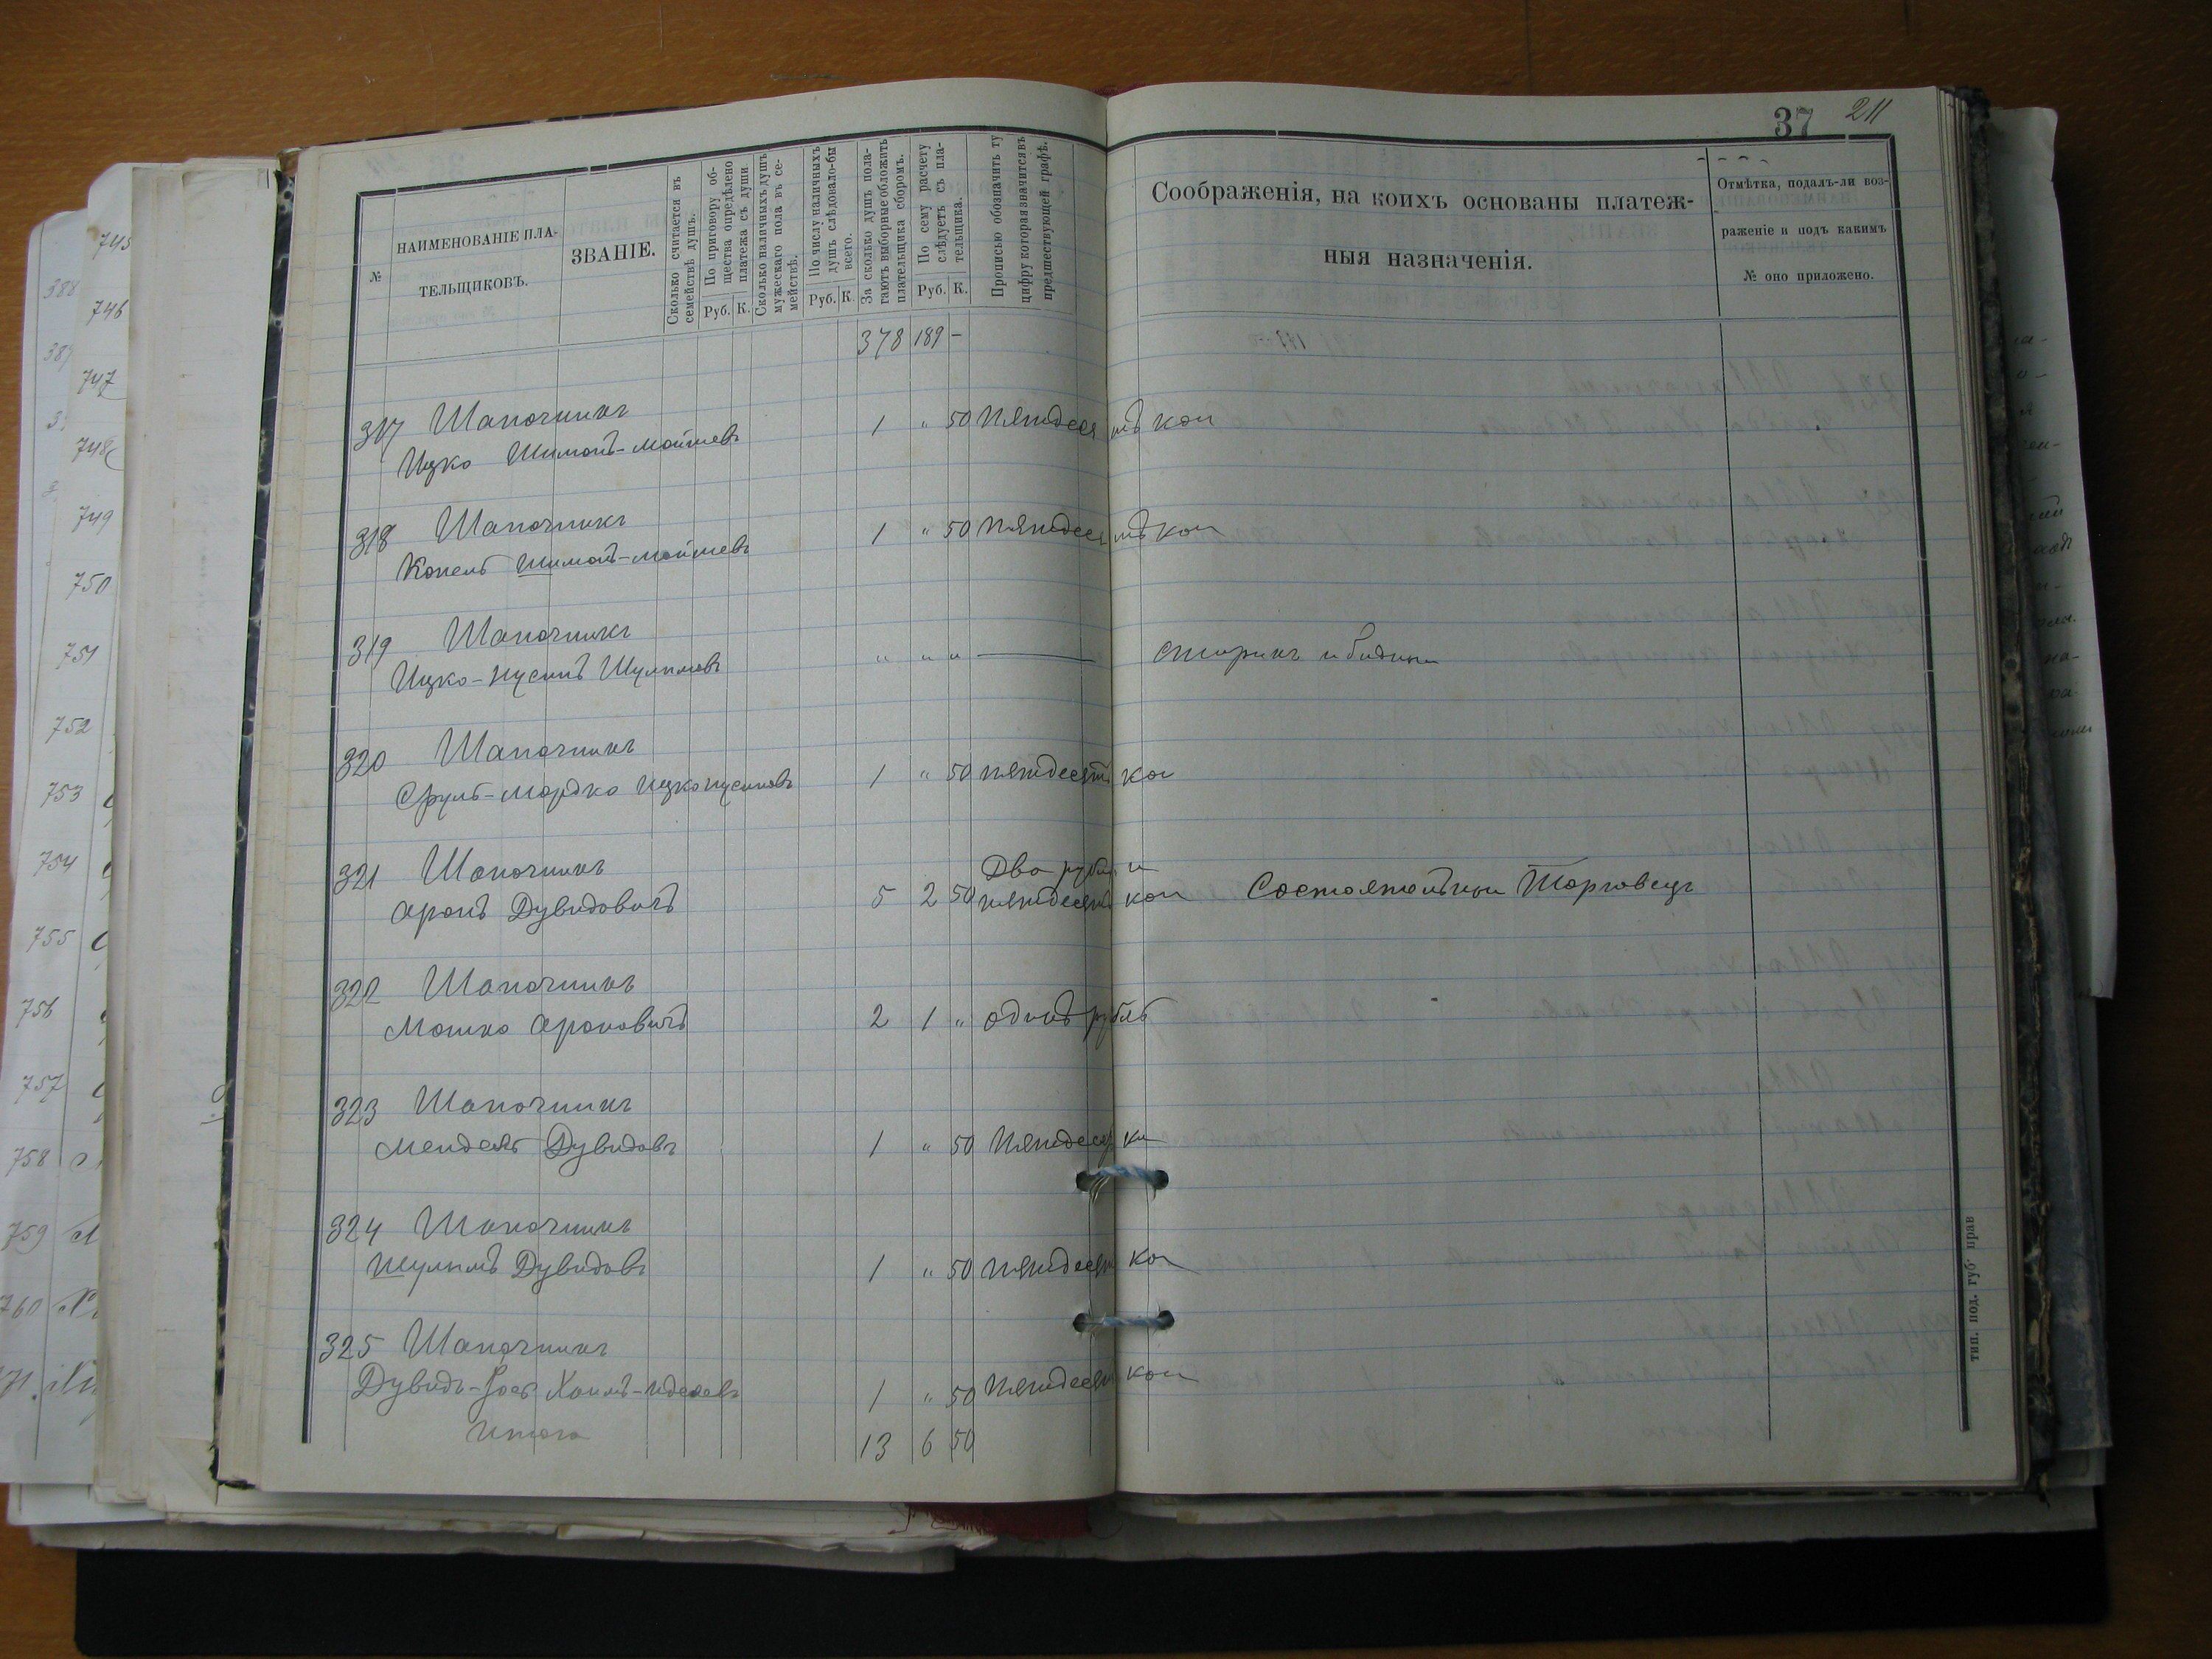 37 211
№
НАИМЕНОВАНІЕ ПЛА-
ТЕЛЬЩИКОВЪ.
ЗВАНІЕ.
Сколько считается въ
семействѣ душъ.
По приговору об-
щества опредѣлено
платежа съ души
Руб. К.
Сколько наличныхъ душъ
мужескаго пола въ се-
мействѣ.
По числу наличныхъ
душъ слѣдовало-бы
всего.
Руб. К.
За сколько душъ пола-
гаютъ выборные обложить
плательщика сборомъ.
По сему расчету
слѣдуетъ съ пла-
тельщика.
Руб. К.
Прописью обозначить ту
цифру которая значится въ
предшествующей графѣ.
Соображенія, на коихъ основаны платеж-
ныя назначенія.
Отмѣтка, подалъ-ли воз-
раженіе и подъ какимъ
№ оно приложено.
378 189 -
317 Шапочникъ
Ицко Шимонъ-Мойшевъ 1 " 50 Пятдесятъ коп
318 Шапочникъ
Копель Шимонъ-Мойшевъ 1 " 50 Пятдесятъ коп
319 Шапочникъ
Ицко-Нусинъ Шулимовъ " " " — старикъ и бѣдный
320 Шапочникъ
Сруль-Мордко Ицконусиновъ 1 " 50 пятдесятъ коп
321 Шапочникъ Два рубля и
Аронъ Дувидовичъ 5 2 50 пятдесятъ коп Состоятельный Торговецъ
322 Шапочникъ
Мошко Ароновичъ 2 1 " одинъ рубль
323 Шапочникъ
Мендель Дувидовъ 1 " 50 Пятдесят ко
324 Шапочникъ
Шулимъ Дувидовъ 1 " 50 пятдесят коп
325 Шапочникъ
Дувидъ-Хаимъ-Иделевъ 1 " 50 Пятдесят коп
Итого 13 6 50
тип. под. губ. прав
745
746
747
748
749
750
751
752
753
754
755
756
757
758
759
760